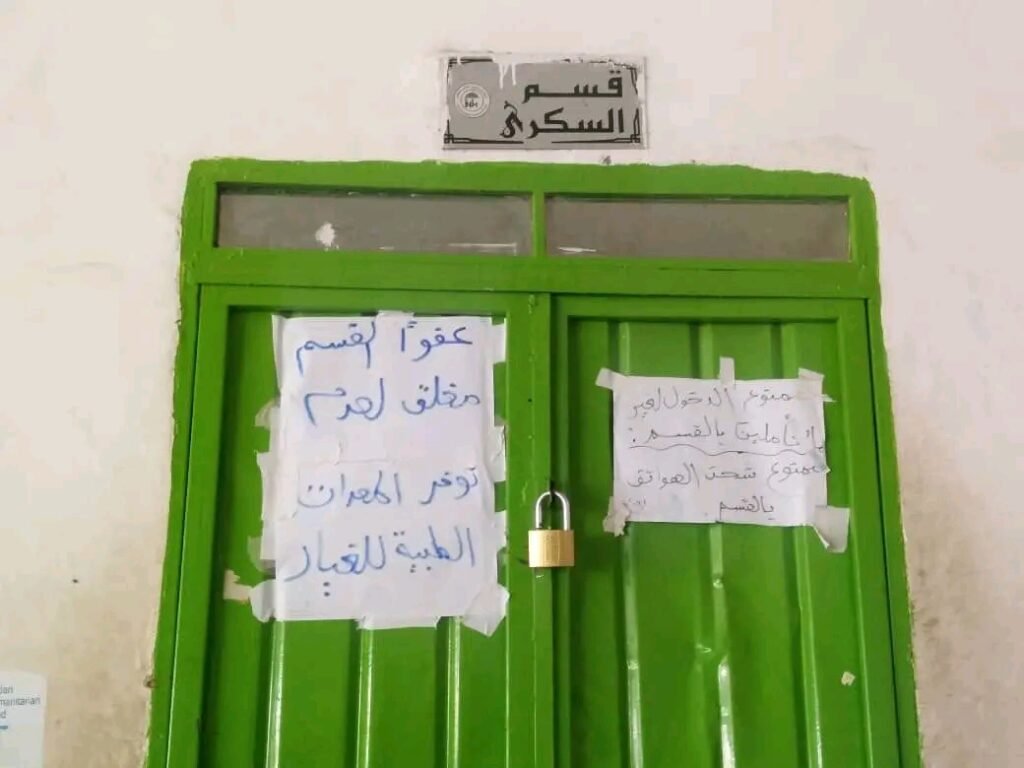 قسم
السكرى
عفوًا القسم
مغلق لعدم
توفر المعدات
الطبية للغيار
ممنوع الدخول لغير
بالقسم :
ممنوع شحن الهواتف
بالقسم .
manitarian